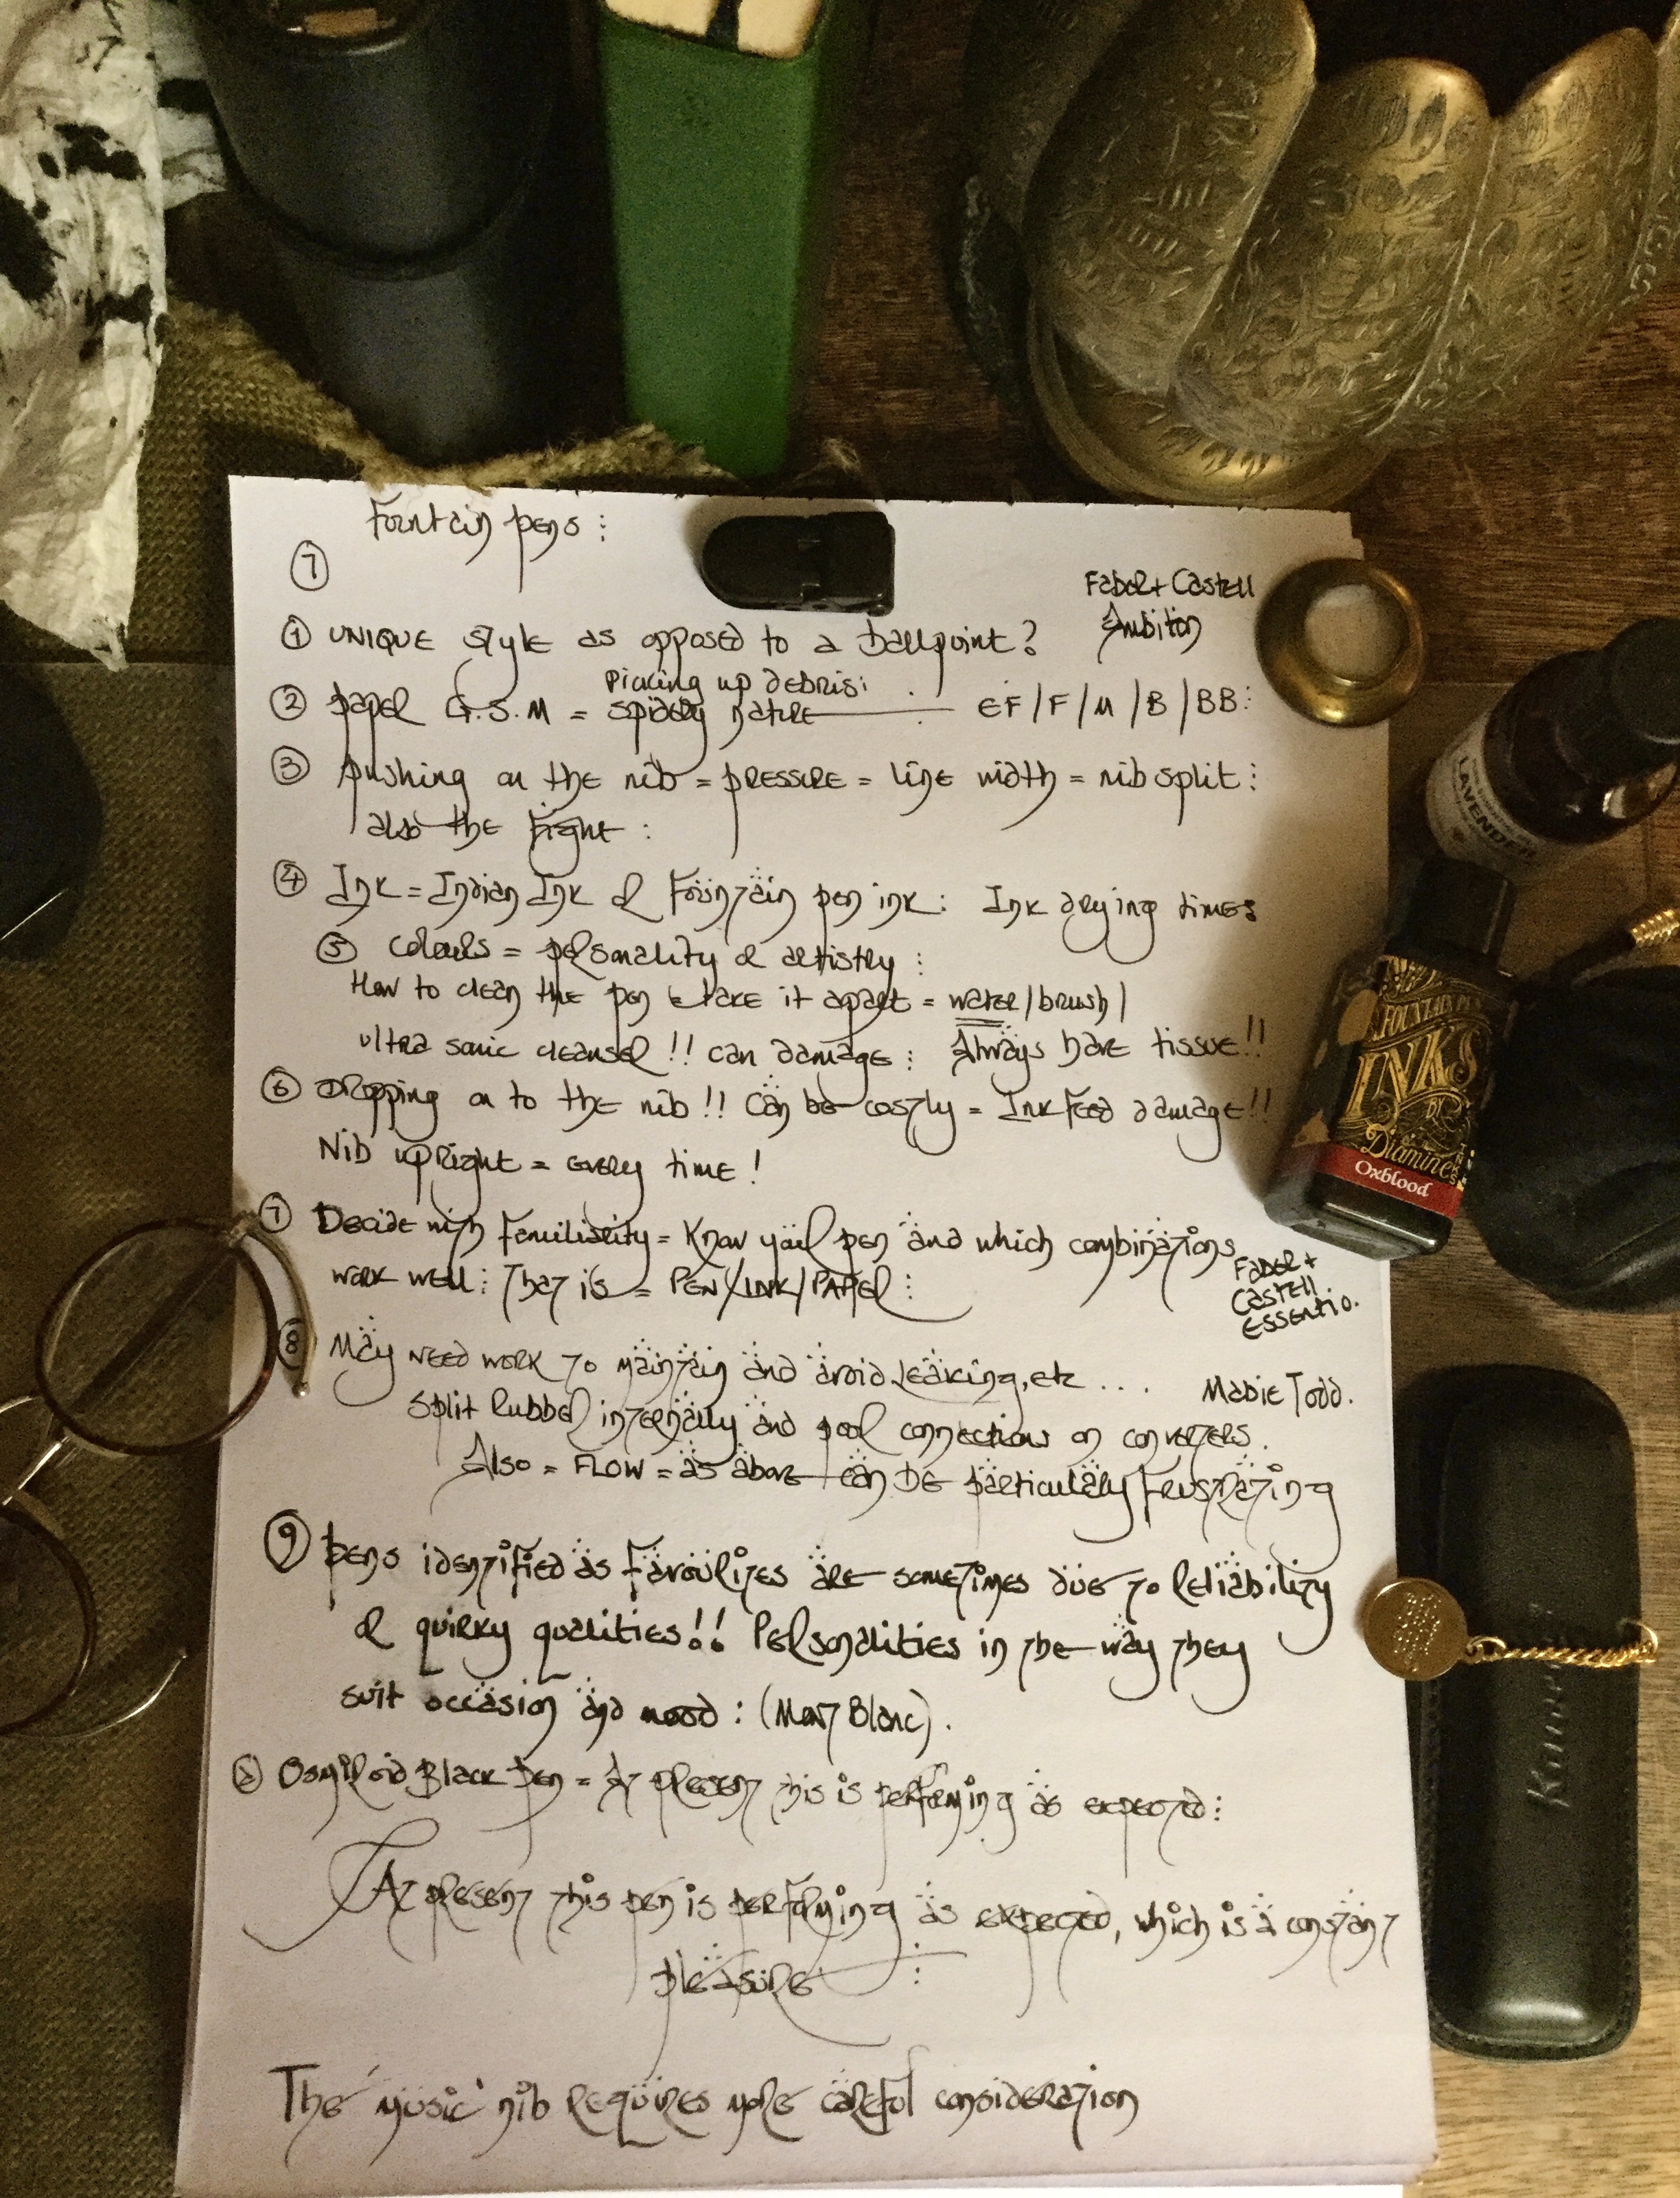 Fountain pens :
7
Faber + Castell
Ambition
1 UNIQUE style as opposed to a ballpoint?
Picking up debris:
2 paper G.S.M = spidery nature EF / F / M / B / BB:
3 pushing on the nib = pressure = line width = nib split :
also the :
4 Ink = Indian Ink or Fountain pen ink : Ink drying times
5 Colours = personality or artistry :
How to clean the pen take it apart = water / brush /
ultra sonic cleanser !! can damage : Always have tissue !!
6 Dropping on to the nib !! Can be costly = Ink Feed damage !!
Nib upright = every time !
7 Decide with Familiarity = Know your pen and which combinations
work well : That is = PEN / INK / PAPER :
Faber +
Castell
Essentio.
8 May need work to maintain and avoid leaking, etc ....
Mabie Todd.
Split rubber internally and poor connections on converters.
Also = FLOW = as above can be particularly frustrating
9 Pens identified as favourites are sometimes due to reliability
or quirky qualities !! Personalities in the way they
suit occasion and mood : (Mont Blanc).
Osmiroid Black Pen = At present this is performing as expected :
At present this pen is performing as expected, which is a constant
pleasure :
The 'music' nib requires more careful consideration
LAVENDER
FOUNTAIN PEN
INKS
Diamine
Oxblood
Kaweco